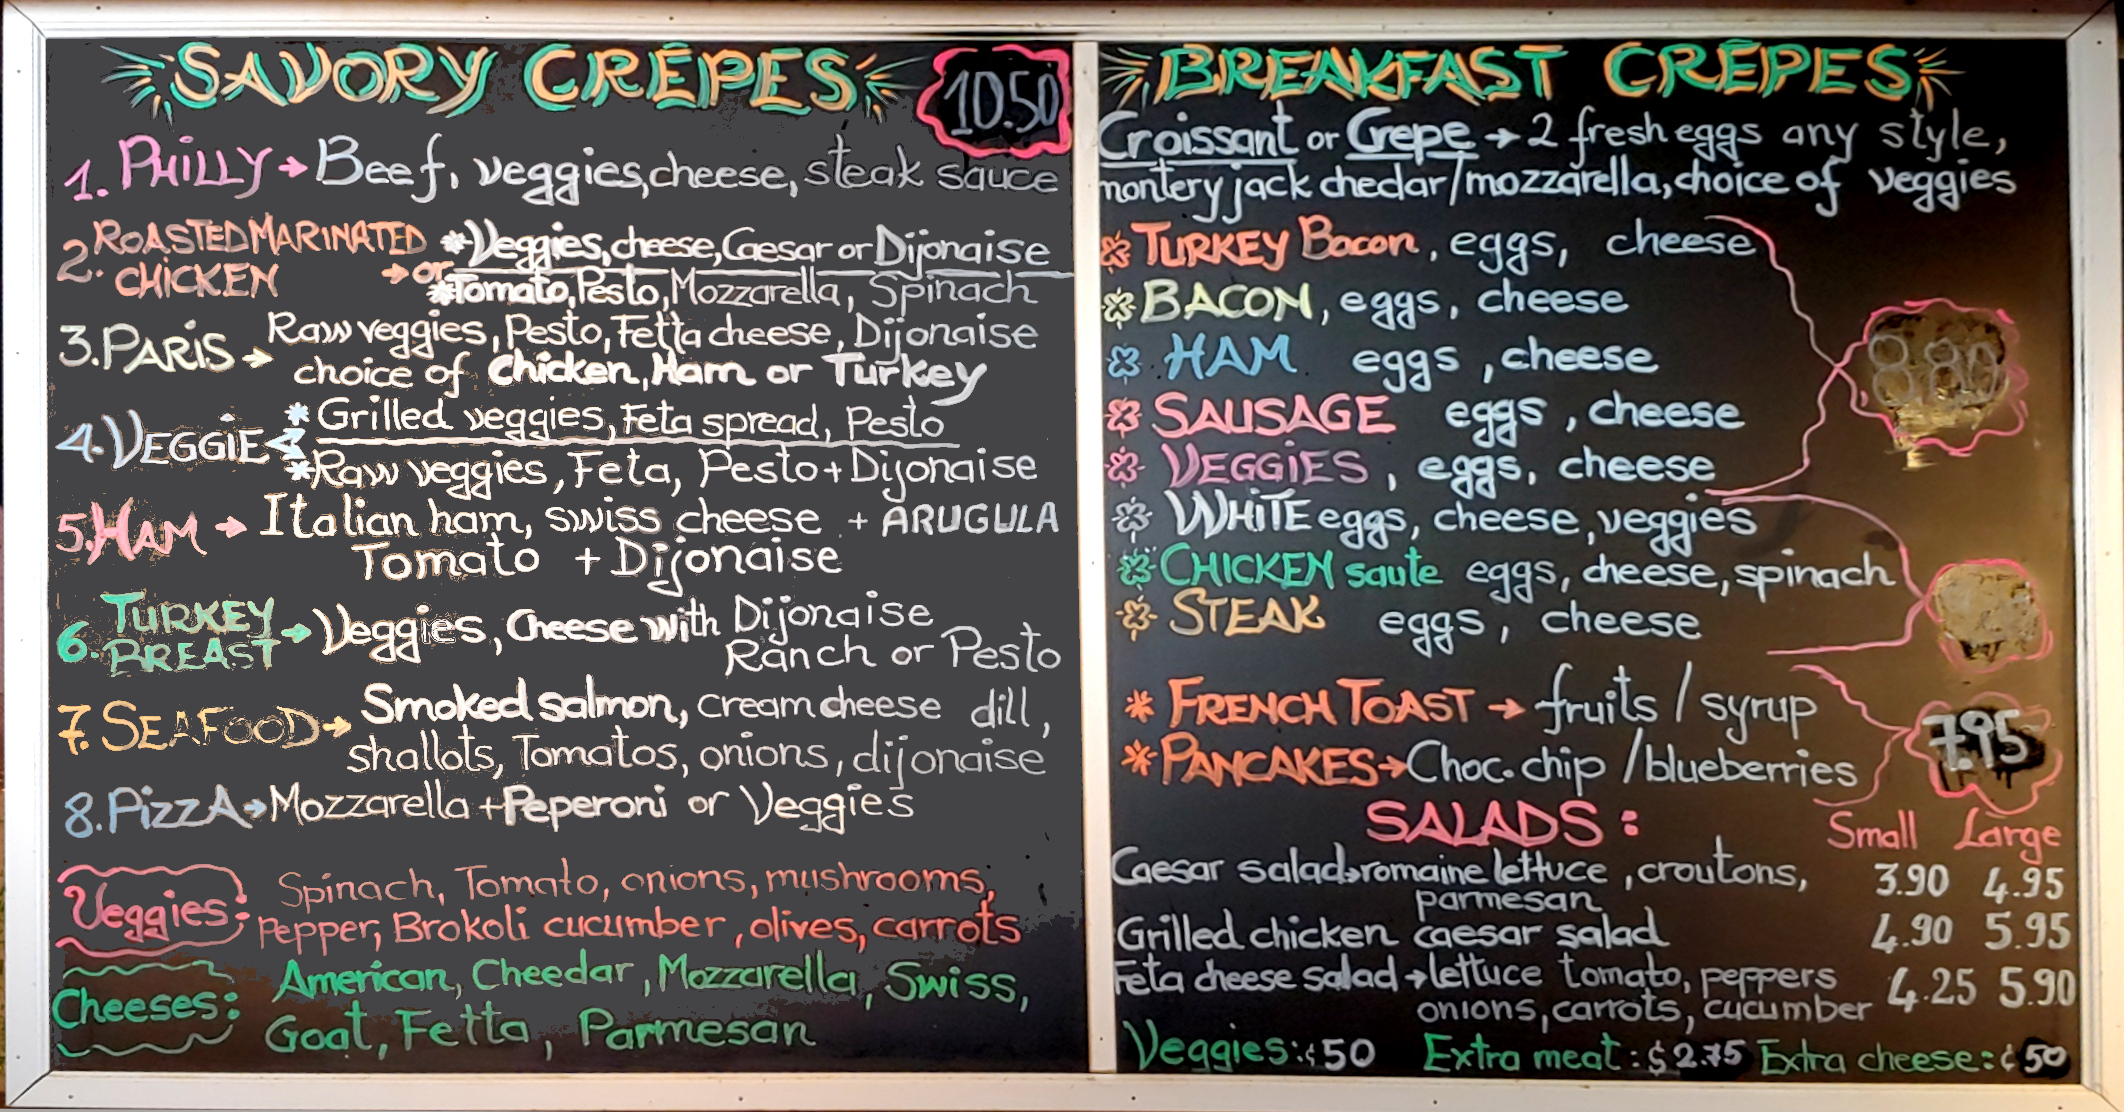 SAVORY CRÊPES 10.50
1. PHILLY → Beef, veggies, cheese, steak sauce
2. ROASTED MARINATED CHICKEN → * Veggies, cheese, Caesar or Dijonaise
or * Tomato, Pesto, Mozzarella, Spinach
3. PARIS → Raw veggies, Pesto, Fetta cheese, Dijonaise
choice of Chicken, Ham or Turkey
4. VEGGIE * Grilled veggies, Feta spread, Pesto
* Raw veggies, Feta, Pesto + Dijonaise
5. HAM → Italian ham, swiss cheese + ARUGULA
Tomato + Dijonaise
6. TURKEY BREAST → Veggies, Cheese with Dijonaise
Ranch or Pesto
7. SEAFOOD → Smoked salmon, cream cheese dill,
shallots, Tomatos, onions, dijonaise
8. PizzA → Mozzarella + Peperoni or Veggies
Veggies: Spinach, Tomato, onions, mushrooms,
Pepper, Brokoli cucumber, olives, carrots
Cheeses: American, Cheedar, Mozzarella, Swiss,
Goat, Fetta, Parmesan
BREAKFAST CRÊPES
Croissant or Crepe → 2 fresh eggs any style,
montery jack chedar/mozzarella, choice of veggies
TURKEY Bacon, eggs, cheese
BACON, eggs, cheese
HAM eggs, cheese
SAUSAGE eggs, cheese
VEGGIES, eggs, cheese
WHITE eggs, cheese, veggies
CHICKEN saute eggs, cheese, spinach
STEAK eggs, cheese
* FRENCH TOAST → fruits / syrup
7.95
* PANCAKES → Choc. chip / blueberries
SALADS: Small Large
Caesar salad → romaine lettuce, croutons, 3.90 4.95
parmesan
Grilled chicken caesar salad 4.90 5.95
Feta cheese salad → lettuce tomato, peppers 4.25 5.90
onions, carrots, cucumber
Veggies: ¢50 Extra meat: $2.75 Extra cheese: ¢50